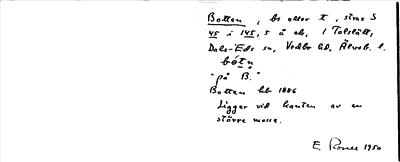 Botten, bs eller t, sms S
45 i 145, 5 å ek, i Tolslätt,
Dals-Eds sn, Vedbo hd, Älvsb. l.
bót:n
"på B."
Botten hb 1886
Ligger vid kanten av en
större mosse.
E 1950